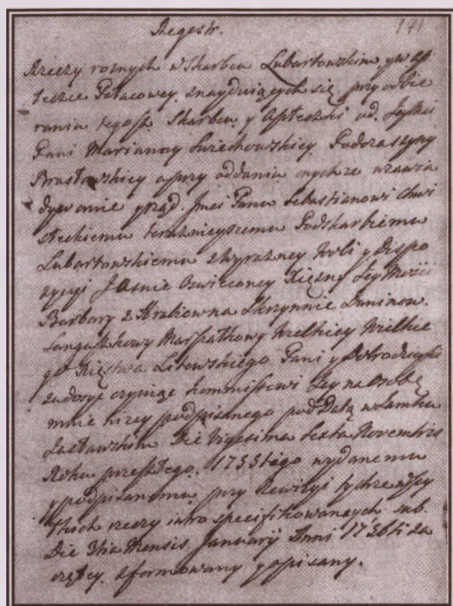 Regestr.
141
Rzeczy roznych w Skarbcu Lubartowskim y w Ap
teczce Pałacowey znayduiących się, przy odbie
raniu tegosz Skarbcu y Apteczki od Jeymci
Pani Marianny Swiechowskiey Podczaszyny
Brasławskiey a przy oddaniu onychze w zawia
dywanie y rząd Jmci Panu Sebastianowi Chwi
steckiemu teraznieyszemu Podskarbiemu
Lubartowskiemu z wyrazney Woli y Dispo
zycyi Jasnie Oswieconey Xiężny Jey Mości
Barbary z Krakowna Skrzynnie Duninow
Sanguszkowy Marszałkowy Wielkiey Wielkie
go Xięstwa Litewskiego Pani y Dobrodzieyki
zadosyc czyniąc Kommissowi Jey na Osobę
mnie nizey podpisanego pod Datą w Zamku
Zasławskim Die Vigesima Sexta Novembris
Roku przeszłego 1755tego wydanemu
y podpisanemu, przy Rewizyi tychze wszy
stkich rzeczy intro specifikowanych sub
Die 3tia Mensis January Anni 1756ti za
częty, zformowany y opisany.